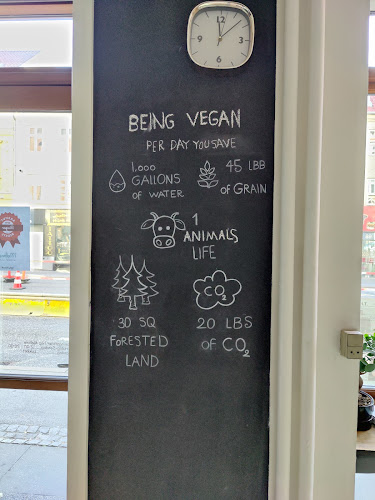 12
3
6
9
BEING VEGAN
PER DAY YOU SAVE
1,000
GALLONS
OF WATER
45 LBB
OF GRAIN
1
ANIMALS
LIFE
CO2
30 SQ
FORESTED
LAND
20 LBS
OF CO2